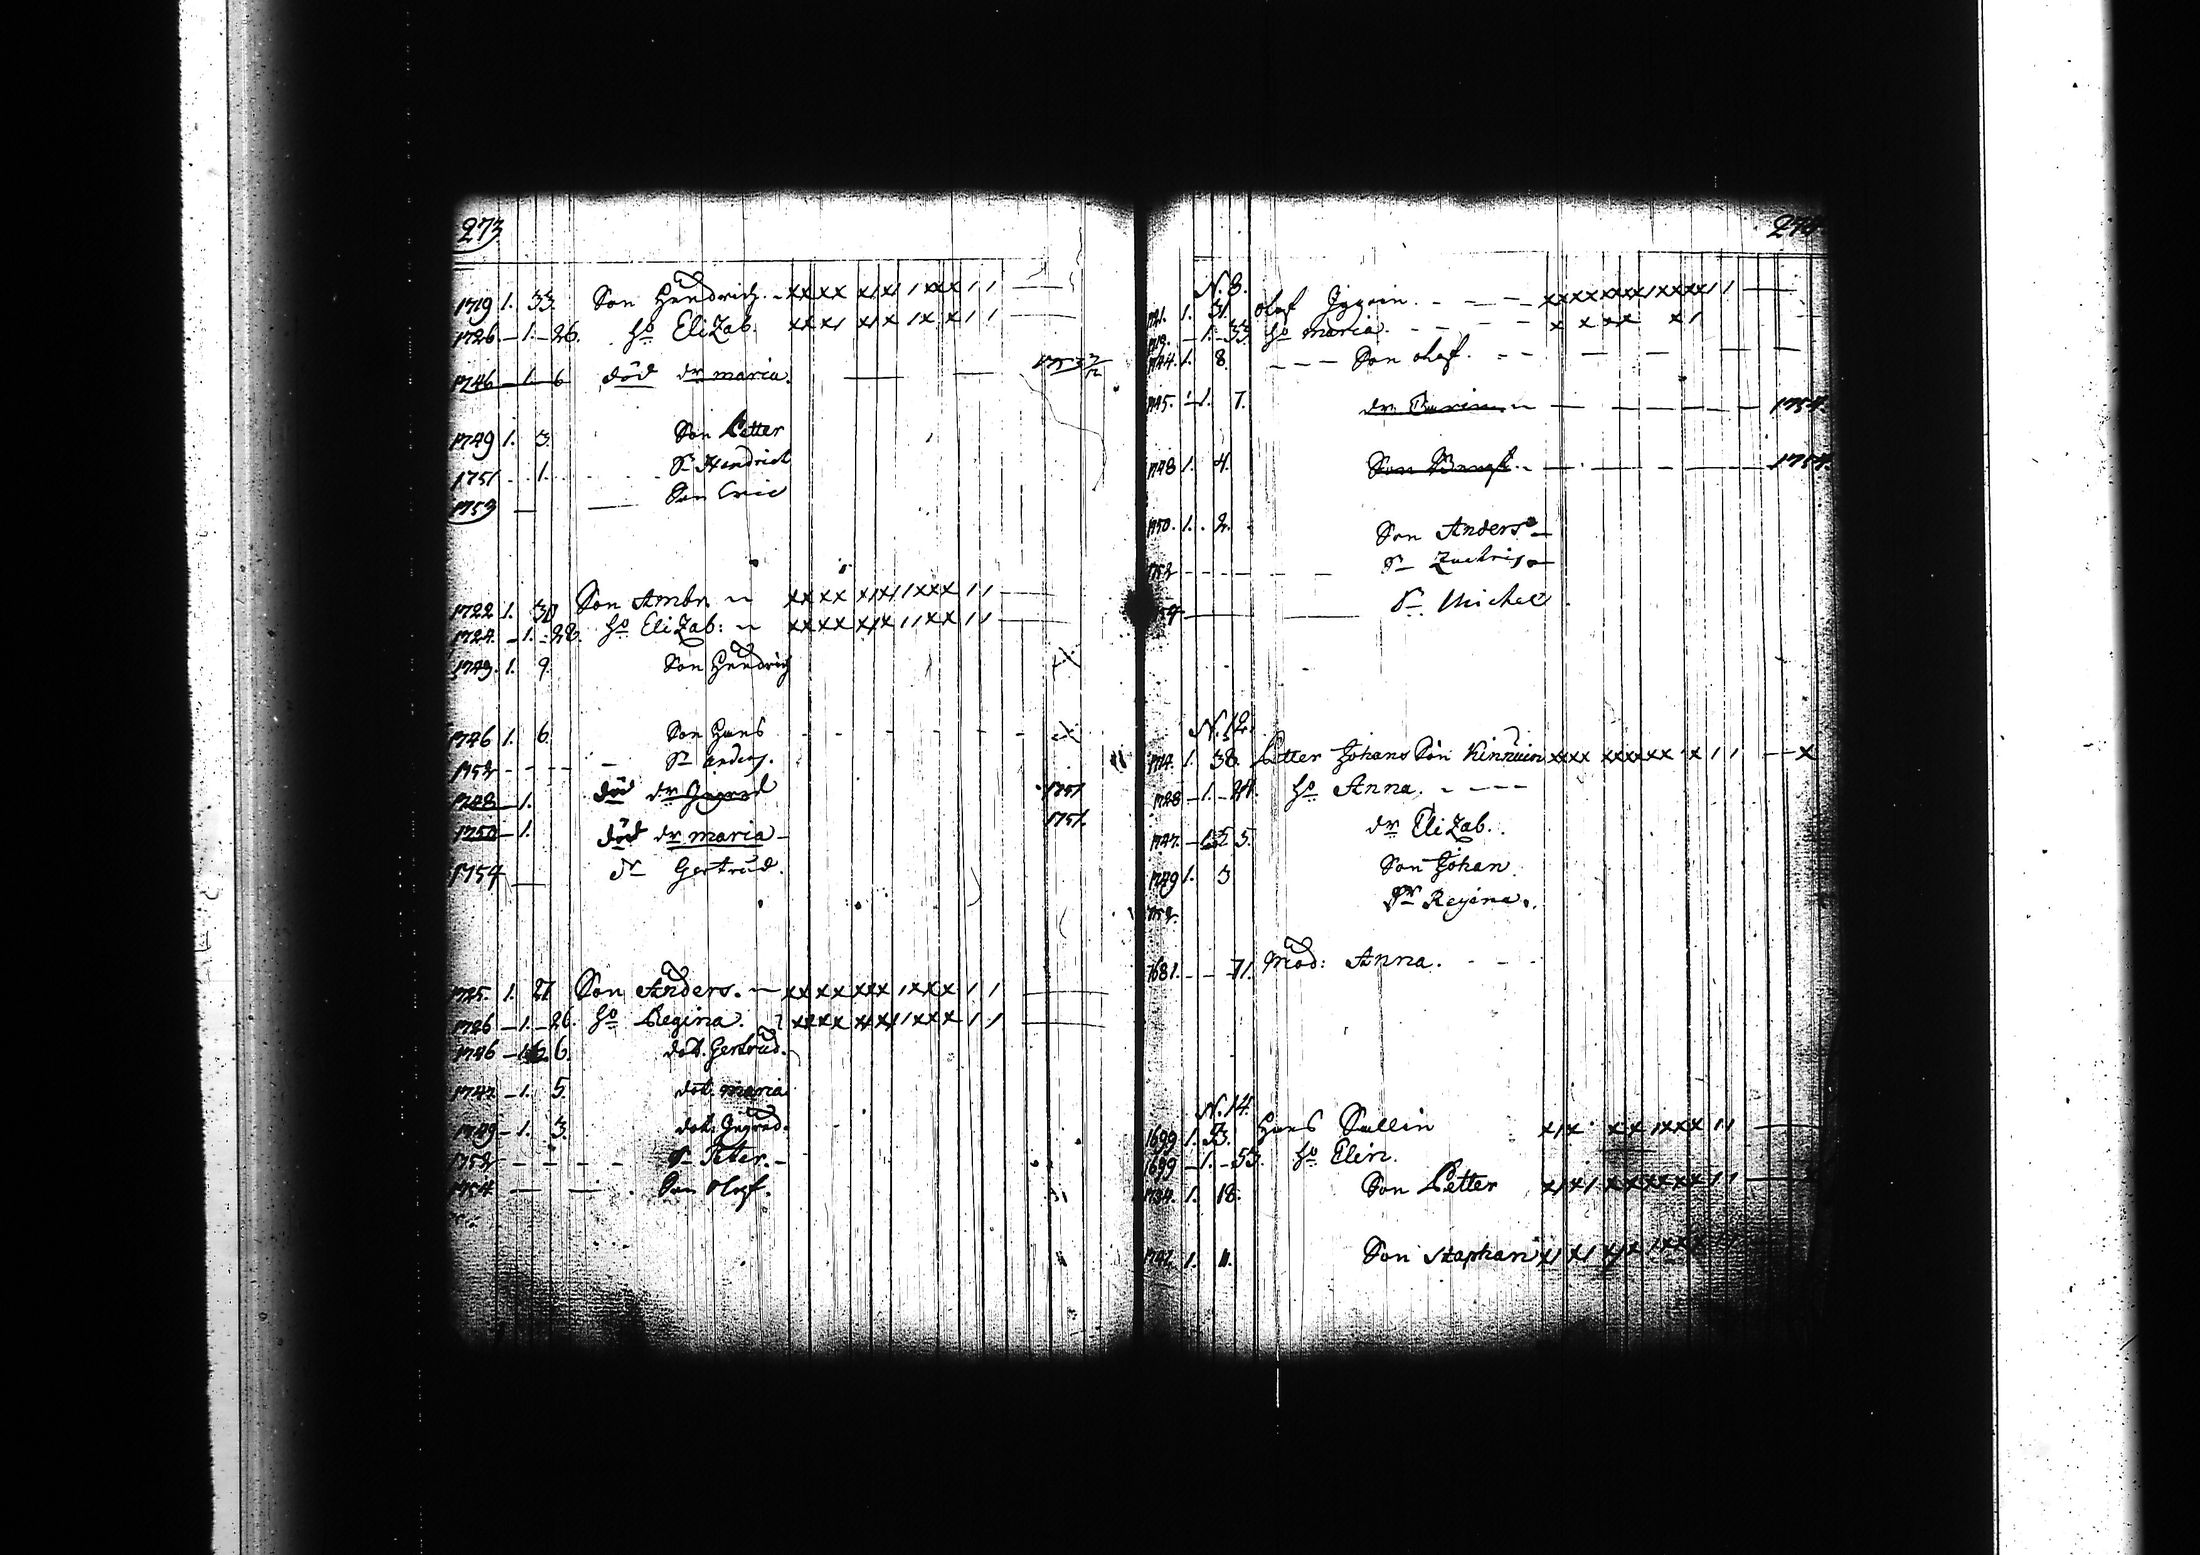 273
1719 1. 33. Son Hendrich. - xxxx x/x/ / xxx / /
1726. - 1. - 26. Ho Elizab. xxx/ x/x / x x / /
1746 - 1. 6 död dr maria.
1749 1. 3. Son Petter
1751 . 1. Sn Hendrich
1753 — Son Eric
1722 1. 30 Son Ambr. xxxx x/x/ / xxx / /
1724. - 1. - 28. Ho Elizab: xxxx x/x / / xx / /
1743. 1. 9. Son Hendrich
1746 1. 6. Son Hans
1752 - - - Sn anders.
1748 - 1. död dr 1751
1750 - 1. död dr maria - 1751.
1754 — dr Gertrud.
1725. 1. 27 Son Anders. - xxxx xxx / xxx / /
1726 - 1. - 26. Ho Regina. xxxx x/x/ / xxx / /
1746 - 6. dot. Gertrud.
1747. - 1. 5. dot. maria
1749 - 1. 3. dot.
1752 - - - - Sn Peter. -
1754 — — . Son Olof.
N. 8.
1721. 1. 31. Olof
1719. - 1. - 33. Ho maria.
1744. 1. 8. - - - Son Olof.
1745. - 1. 7. dr 1754.
1748 1. 4. Son 1754.
1750. 1. . 2. Son Anders
1752 - - - - Sn
Sn Michel
N. 12.
1714. 1. 38. Petter Johans Son xxxx xxxxxx x / / — x
1728 - 1. - 24. Ho Anna. - - - -
1747. 5. dr Elizab.
1749 1. 3 Son Johan.
1752. Dr Regina.
1681. - - 71. Mod: Anna. - - -
N. 14.
1699 1. 53. Hans Sallin x/x x x /xxx / /
1699 - 1. - 53. Ho Elin.
1734. 1. 18. Son Petter x/x/ xxxxxx / /
1741. 1. 11. Son Staphan